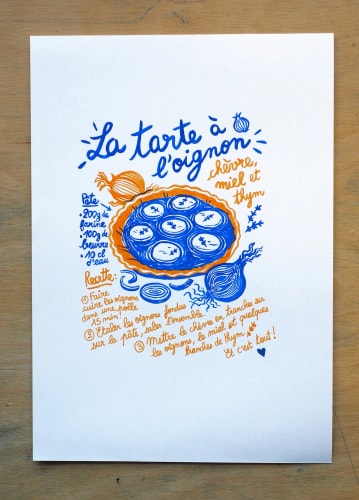 La tarte à
l'oignon
chèvre,
miel et
thym
Pâte
• 200g de
farine
• 100g de
beurre
• 10 cl
d'eau
Recette:
① Faire
cuire les oignons
dans une poêle
15 min!
② Etaler les oignons fondus
sur la pâte, saler l'ensemble.
③ Mettre le chèvre en tranches sur
les oignons, le miel et quelques
branches de thym
Et c'est tout!